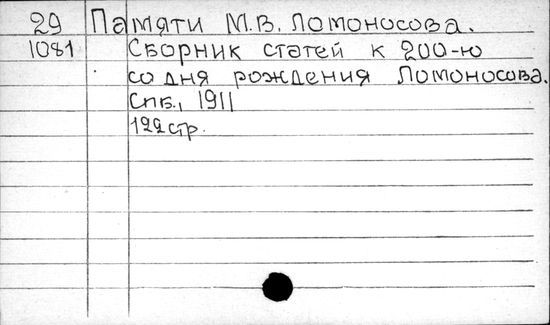 29 Памяти М.В. Ломоносова.
1081 Сборник статей к 200-ю
со дня рождения Ломоносова.
Спб., 1911
122 стр.